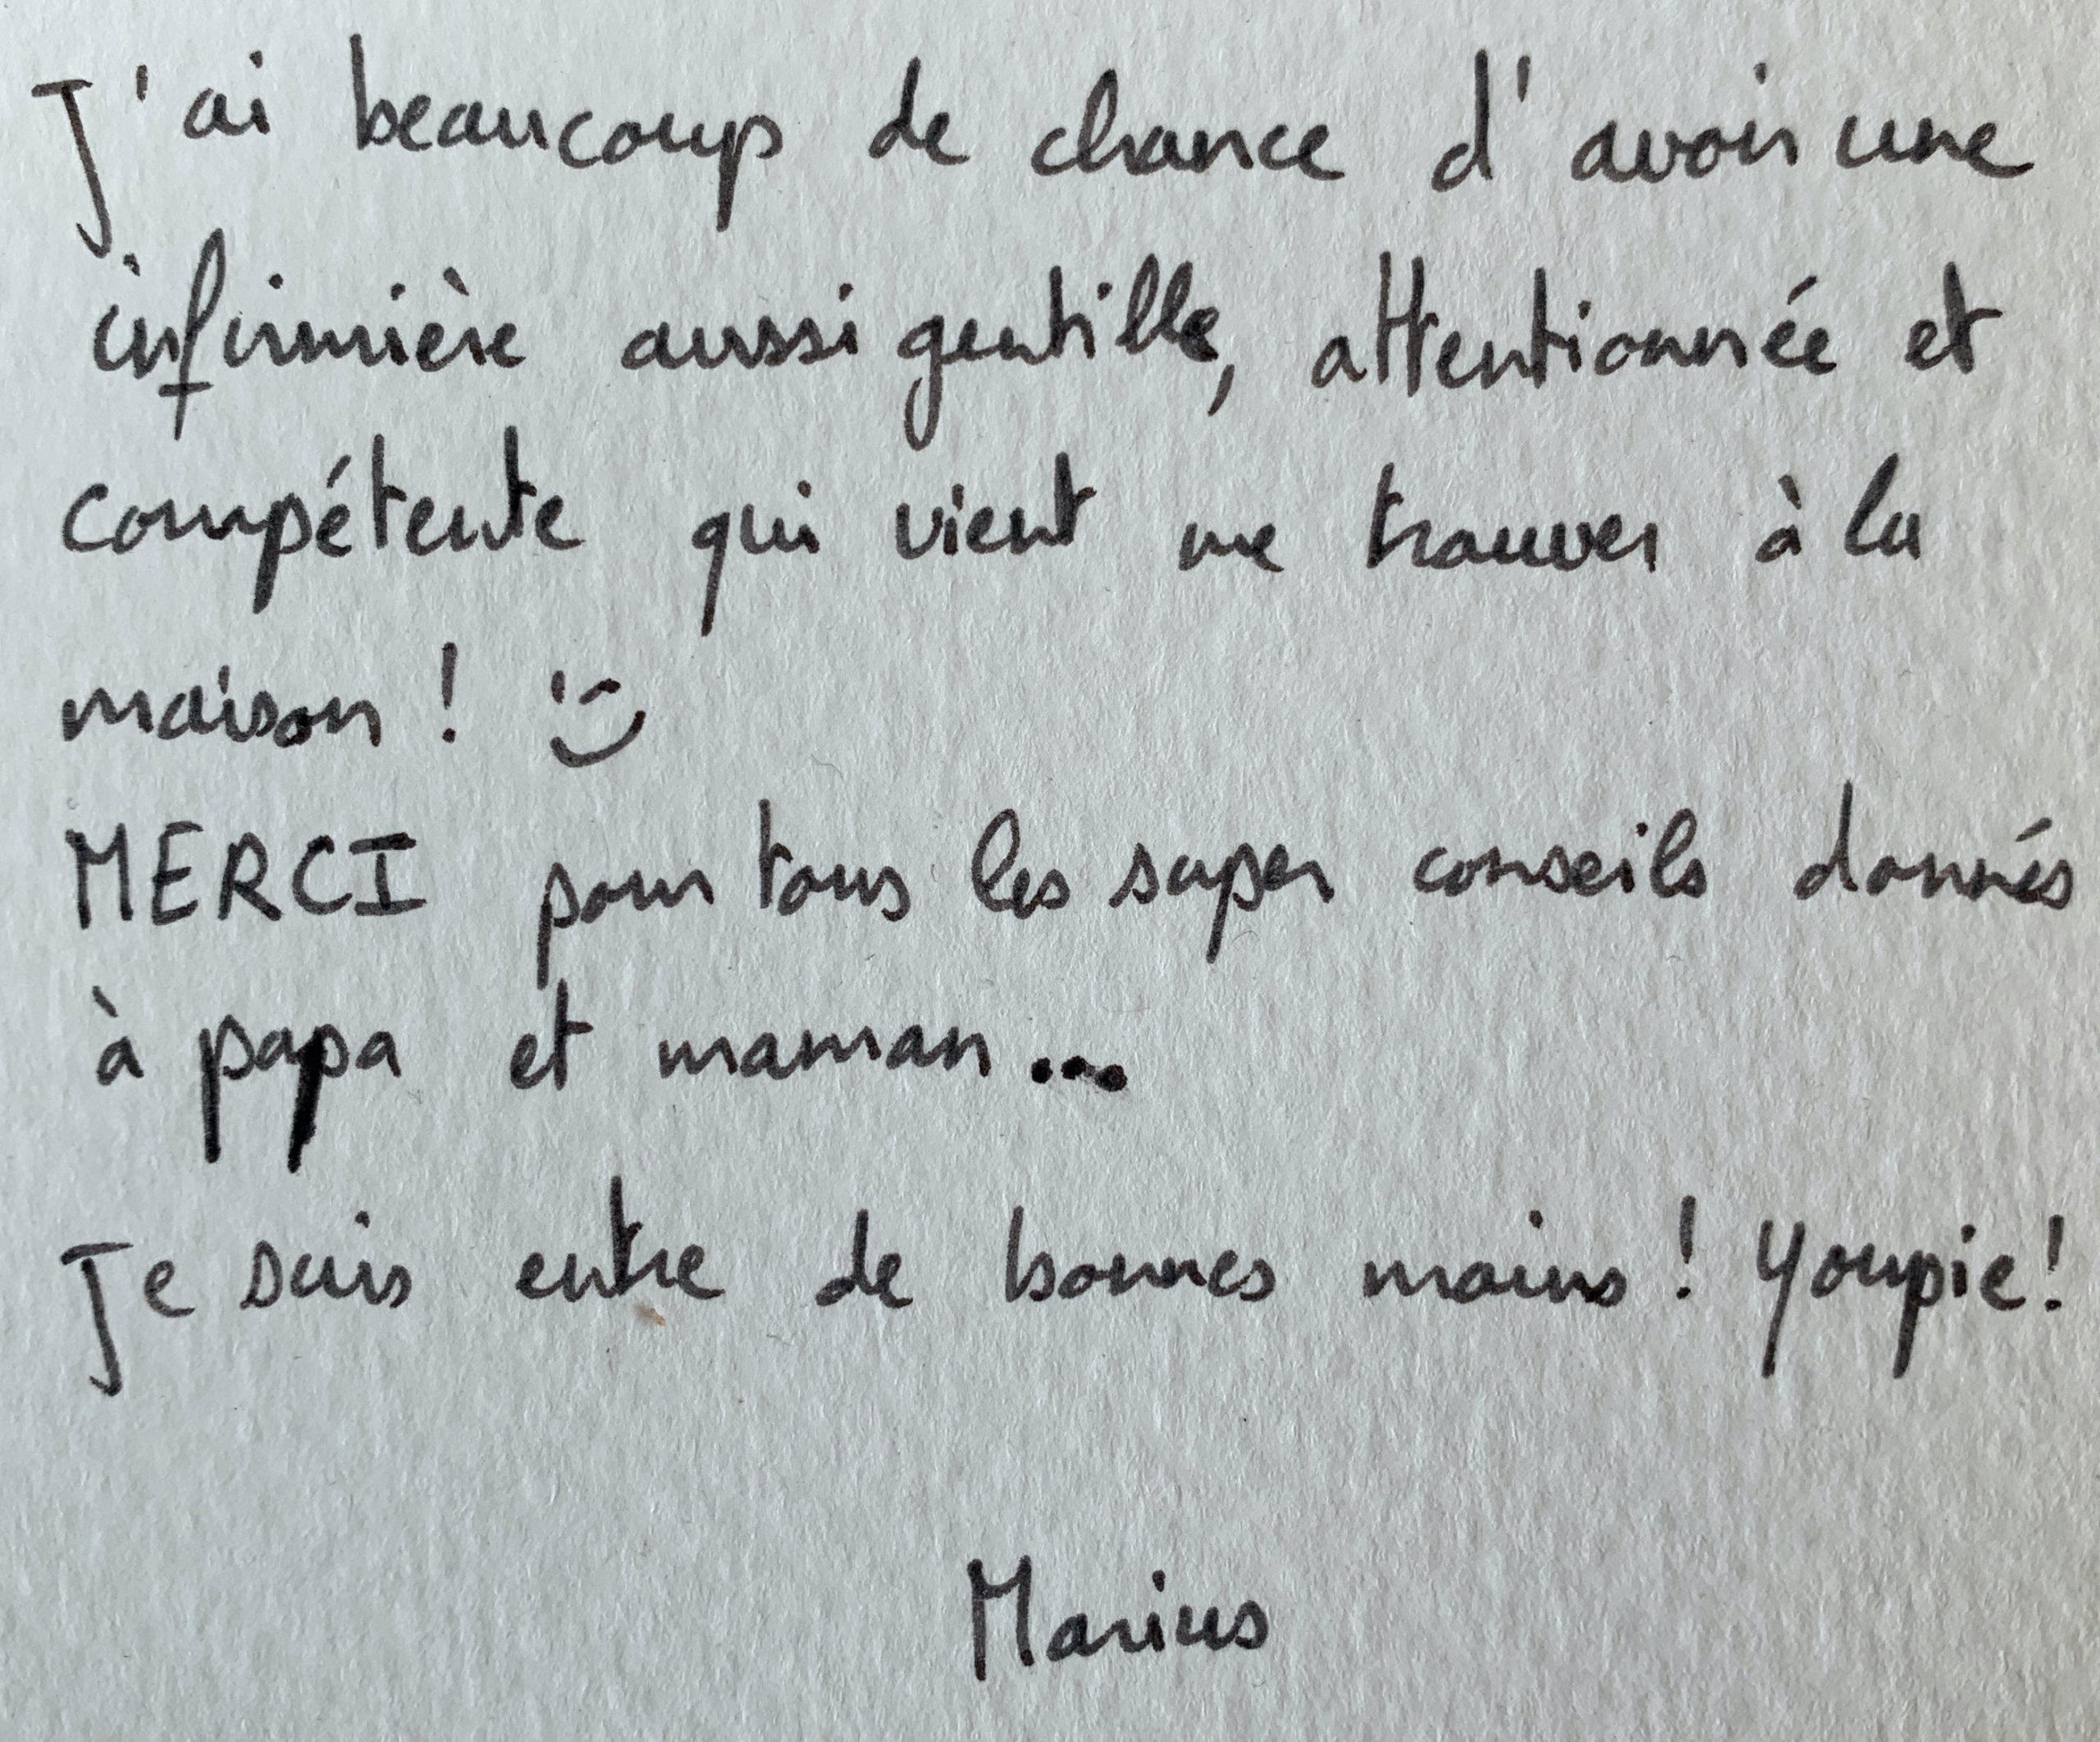 J'ai beaucoup de chance d'avoir une
infirmière aussi gentille, attentionnée et
compétente qui vient me trouver à la
maison ! :)
MERCI pour tous les super conseils donnés
à papa et maman...
Je suis entre de bonnes mains ! Youpie !
Marius